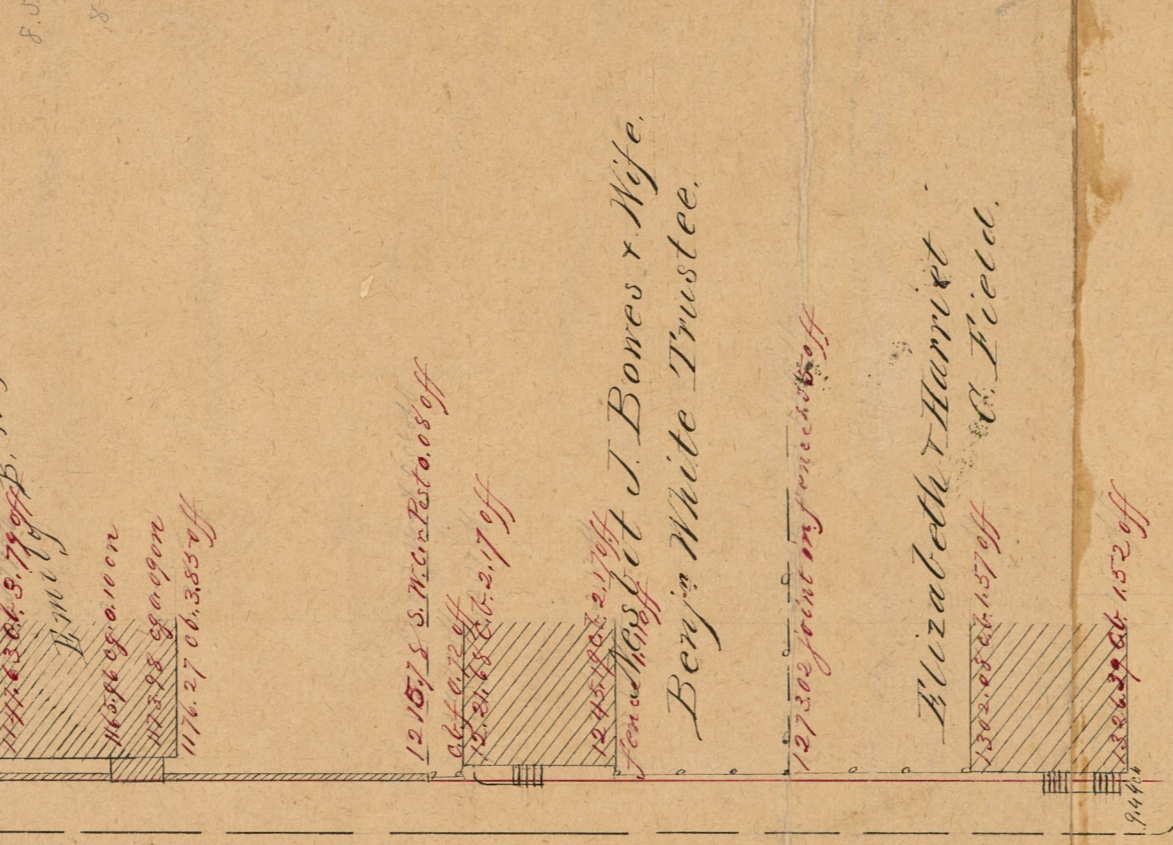 8.5
8
1147.63 Cb. 3.79 off
Emily
1165.96 cg 0.10 on
1173.98 cg 0.09 on
1176.27 Cb. 3.83 off
1215.78 S.W. Cor Post 0.08 off
Cb.f. 0.72 off
1221.68 Cb. 2.17 off
1245.19 Cb. 2.17 off
fence 1.11 off
Nesbit J Bowes & Wife.
Benjn White Trustee.
1273.02 joint inf fence
off
Elizabeth & Harriet
C. Field.
1302.08 Cb. 1.57 off
1326.39 Cb. 1.52 off
9.44 cb